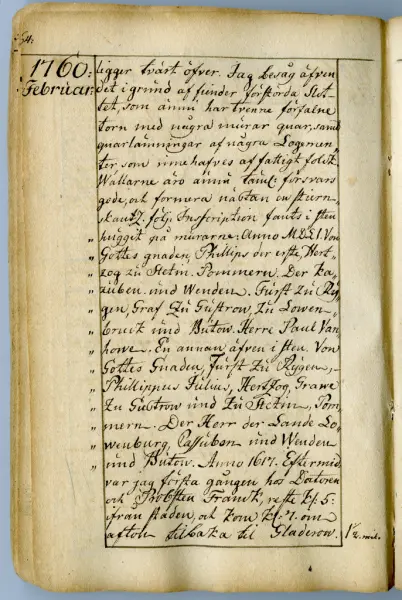 54.
1760:
Februar:
ligger tvärt öfver. Jag besåg äfven
det i grund af fiender förstörda Slot-
tet, som ännu har trenne förfalne
torn med några murar quar, samt
quarlämningar af några Logemen-
ter som inne hafves af fattigt folck.
Wallarne äro ännu taml: försvars
gode, och formera nästan en stiern-
skantz. följ. Inscription fants i sten
" huggit på murarne: Anno MDLI. Von
" Gottes gnaden, Phillips der erste, Hert-
" zog zu Stetin. Pommern. Der Ka-
" züben und Wenden. Fürst zu Ry-
" gen, Graf Zu Gustrow, Zu Lowen-
" bruck und Bütow. Herre Paul Van
" howe. En annan äfven i sten. Von
" Gottes Gnaden, Fürst Zu Rygen,
" Phillippus Julius, Hertzog, Grawe
" Zu Gustrow und Zu Stetin, Pom-
" mern. Der Herr der Lande Lo-
" wenburg, Cassuben und Wenden
" und Butow. Anno 1617. Eftermid.
var jag första gången hos Doctoren
och Probsten Franck, reste kl. 5.
ifrån staden, och kom kl. 7. om
afton tilbaka til Gladerow.
1 1/2. mil.